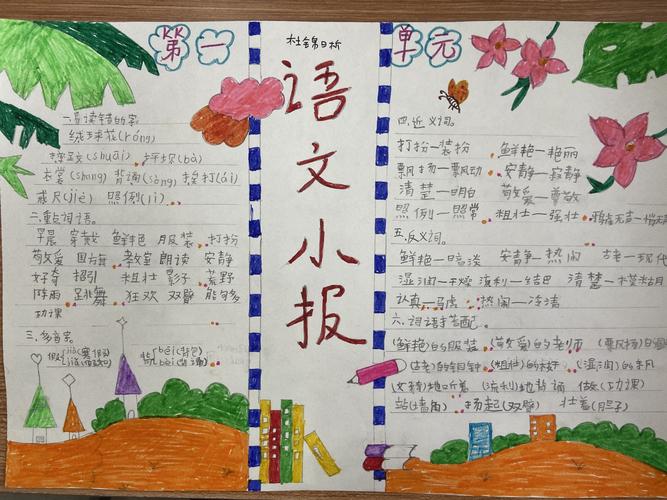 第一
一.易读错的字.
绒球花(róng)
摔跤(shuāi) 坪坝(bà)
衣裳(shang) 背诵(sòng) 挨打(ái)
戒尺(jiè) 照例(lì)
二.重点词语。
早晨 穿戴 鲜艳 服装 打扮
敬爱 国旗 教室 朗读 安静
好奇 招引 粗壮 影子 荒野
阵雨 跳舞 狂欢 双臂 能够多
功课
三.多音字.
假 jià(寒假)
背 bēi(背包)
语文小报
单元
四.近义词。
打扮—装扮 鲜艳—艳丽
飘扬—飘动 安静—寂静
清楚—明白 敬爱—尊敬
照例—照常 粗壮—强壮
五.反义词。
鲜艳—暗淡 安静—热闹 古老—现代
湿润—干燥 流利—结巴 清楚—模糊
认真—马虎 热闹—冷清
六.词语搭配.
(鲜艳)的服装 (敬爱)的老师
(古老)的铜钟 (粗壮)的枝干 (湿润)的
(安静)地听着 (流利)地背诵 做(功课)
站(墙角) 扬起(双臂)